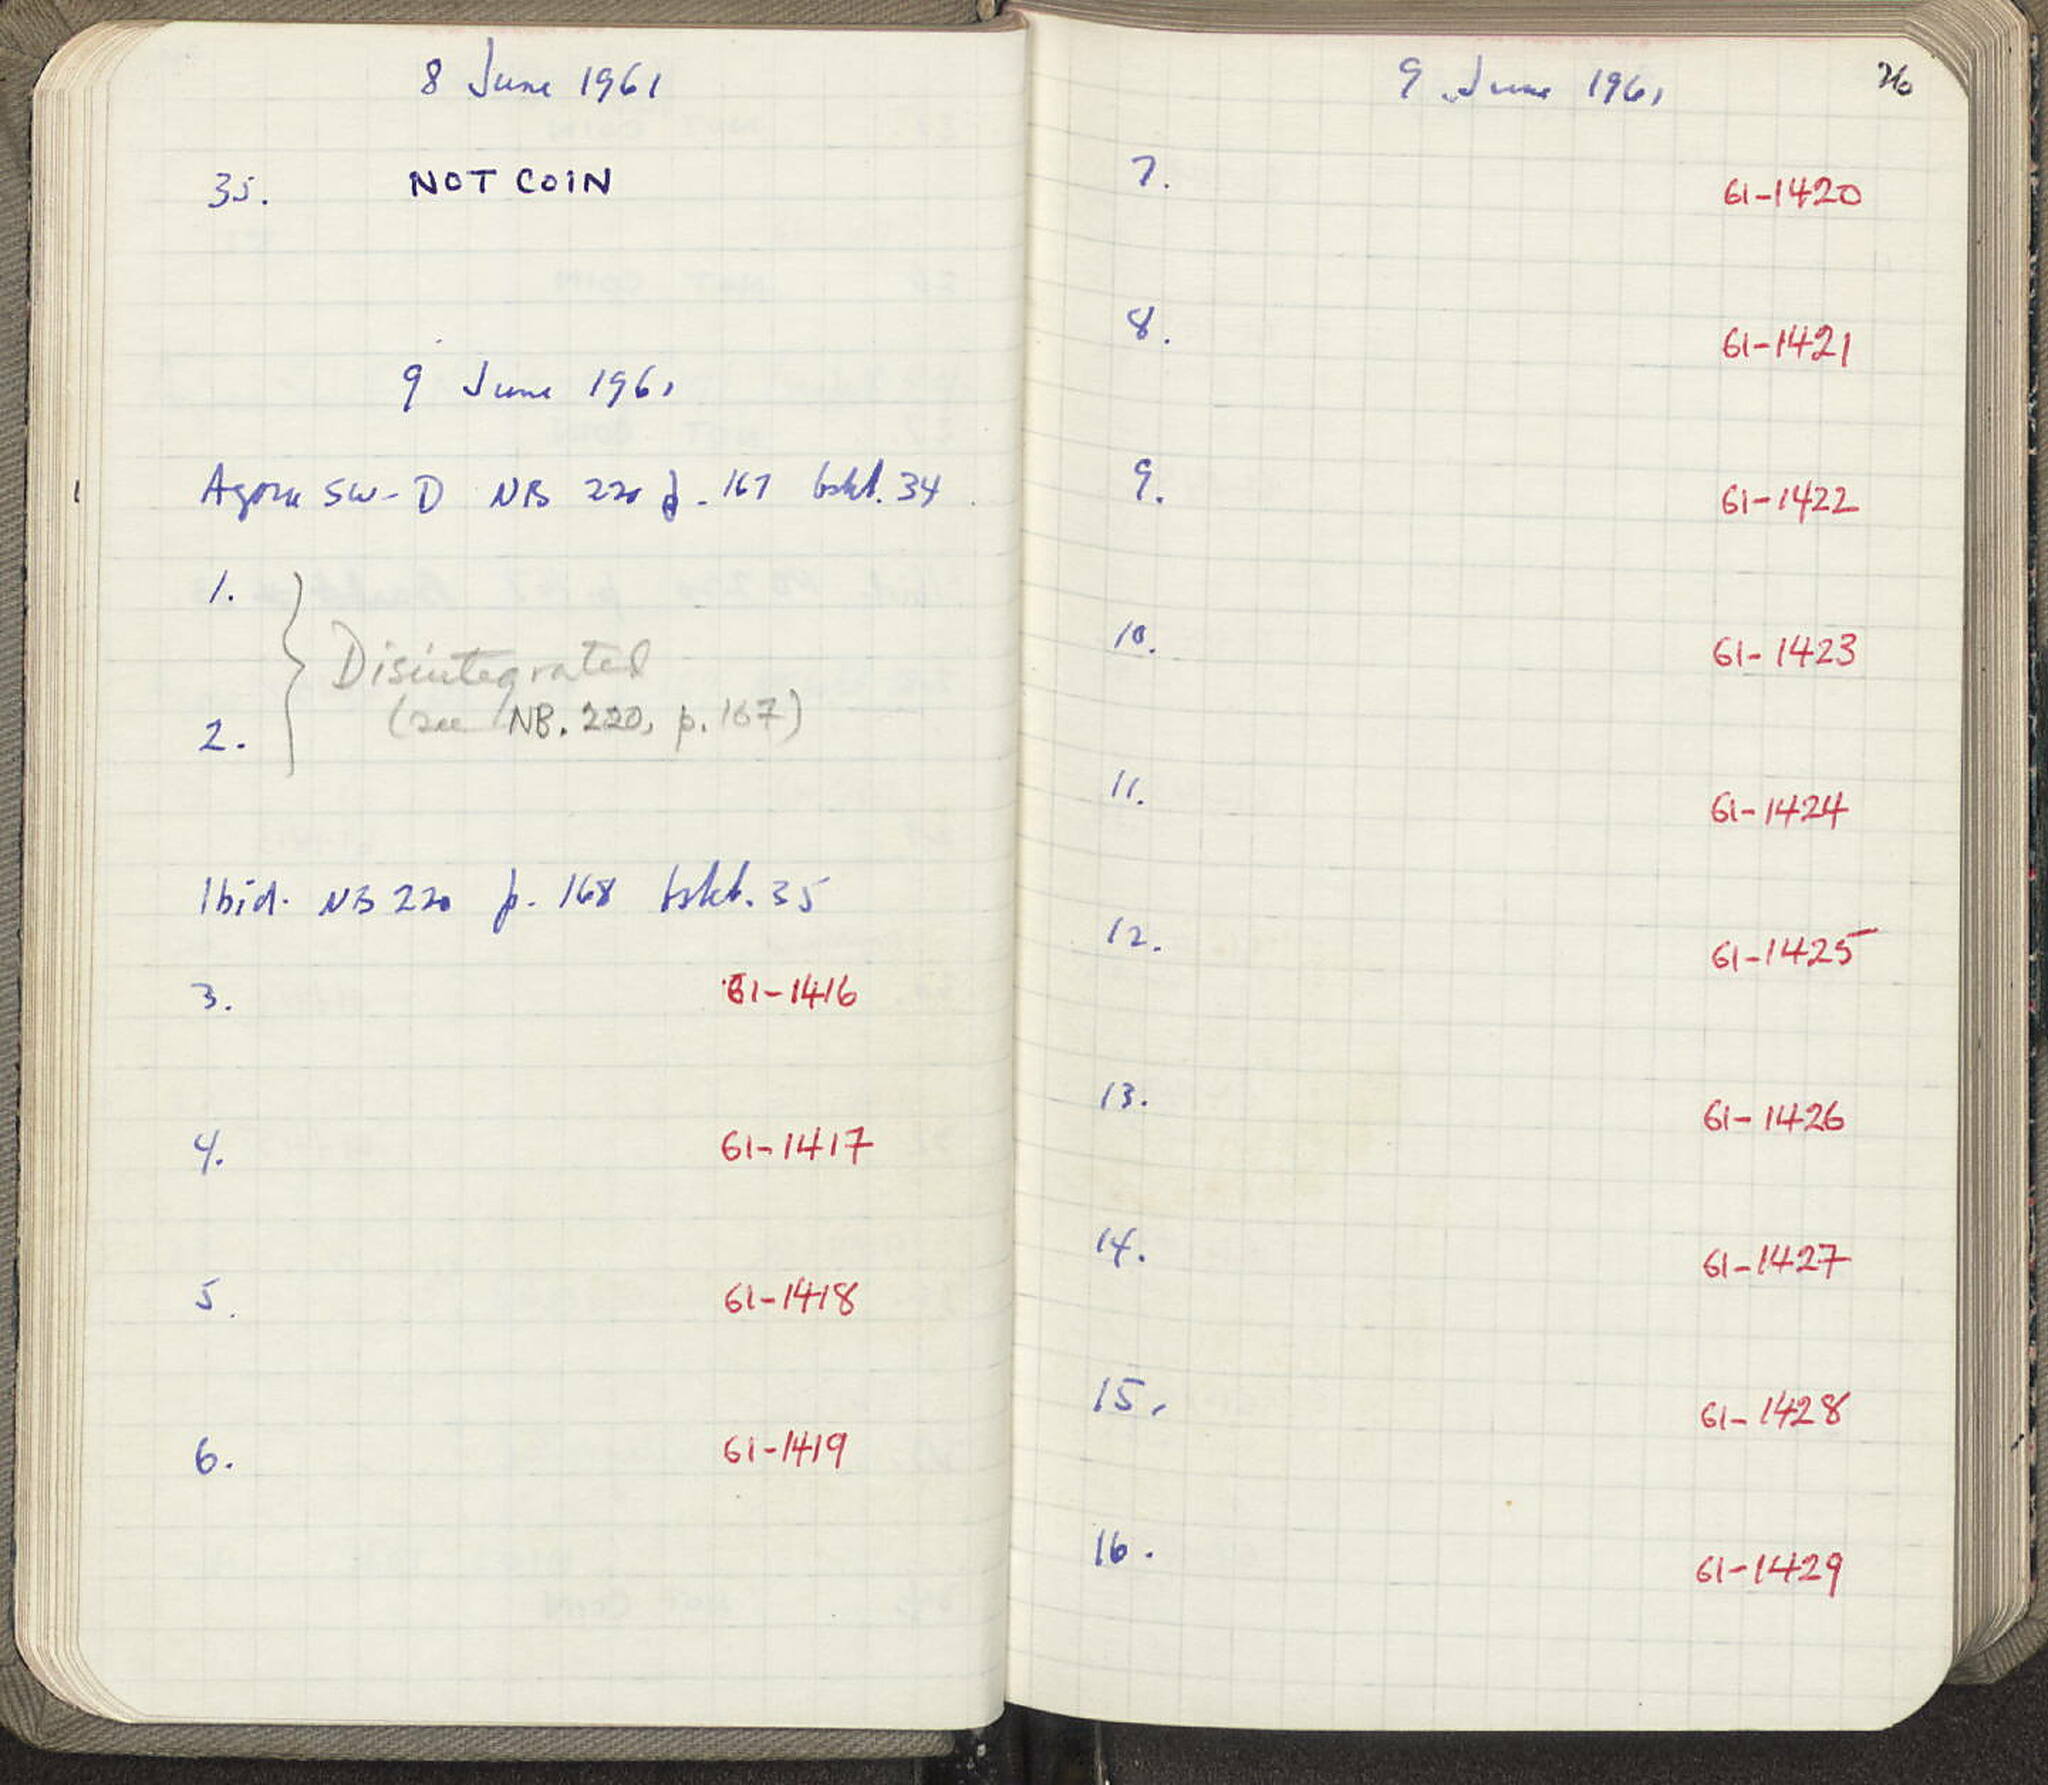 8 June 1961
35. NOT COIN
9 June 1961
Agora SW-D NB 220 p. 167 bskt. 34
1.
Disintegrated
(see NB. 220, p. 167)
2.
Ibid. NB 220 p. 168 bskt. 35
3. 61-1416
4. 61-1417
5. 61-1418
6. 61-1419
9 June 1961
7. 61-1420
8. 61-1421
9. 61-1422
10. 61-1423
11. 61-1424
12. 61-1425
13. 61-1426
14. 61-1427
15. 61-1428
16. 61-1429